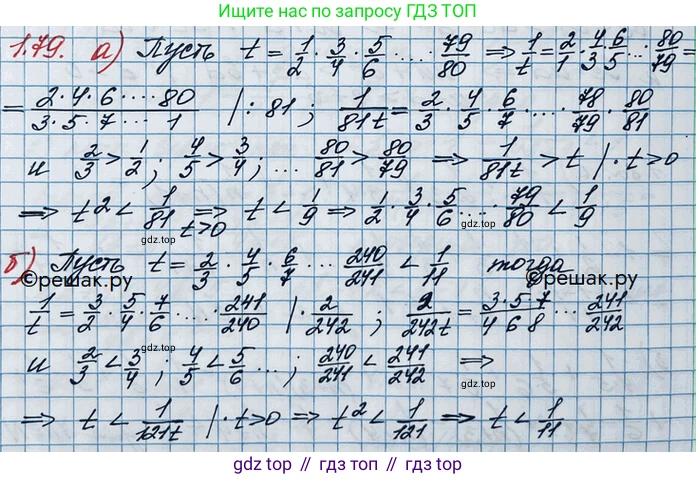 Ищите нас по запросу ГДЗ ТОП
1.79. а) Пусть t = 1/2 · 3/4 · 5/6 .... 79/80 ⇒ 1/t = 2/1 · 4/3 · 6/5 ... 80/79 =
= 2·4·6·...·80 / 3·5·7·...·1 | : 81 ; 1/81t = 2/3 · 4/5 · 6/7 · ... · 78/79 · 80/81
и 2/3 > 1/2 ; 4/5 > 3/4 ; ... 80/81 > 80/79 ⇒ 1/81t > t | · t > 0
⇒ t² < 1/81 ⇒ t < 1/9 ⇒ 1/2 · 3/4 · 5/6 .... 79/80 < 1/9
t > 0
gdz.top
gdz.top
б) Пусть t = 2/3 · 4/5 · 6/7 ... 240/241 < 1/11 тогда
©решак.ру
©решак.ру
1/t = 3/2 · 5/4 · 7/6 .... · 241/240 | · 2/242 ; 2/242t = 3·5·7/4 6 8 ... · 241/242
и 2/3 < 3/4 ; 4/5 < 5/6 ... ; 240/241 < 241/242 ⇒
gdz.top
gdz.top
⇒ t < 1/121t | · t > 0 ⇒ t² < 1/121 ⇒ t < 1/11
gdz.top // гдз.топ // gdz.top